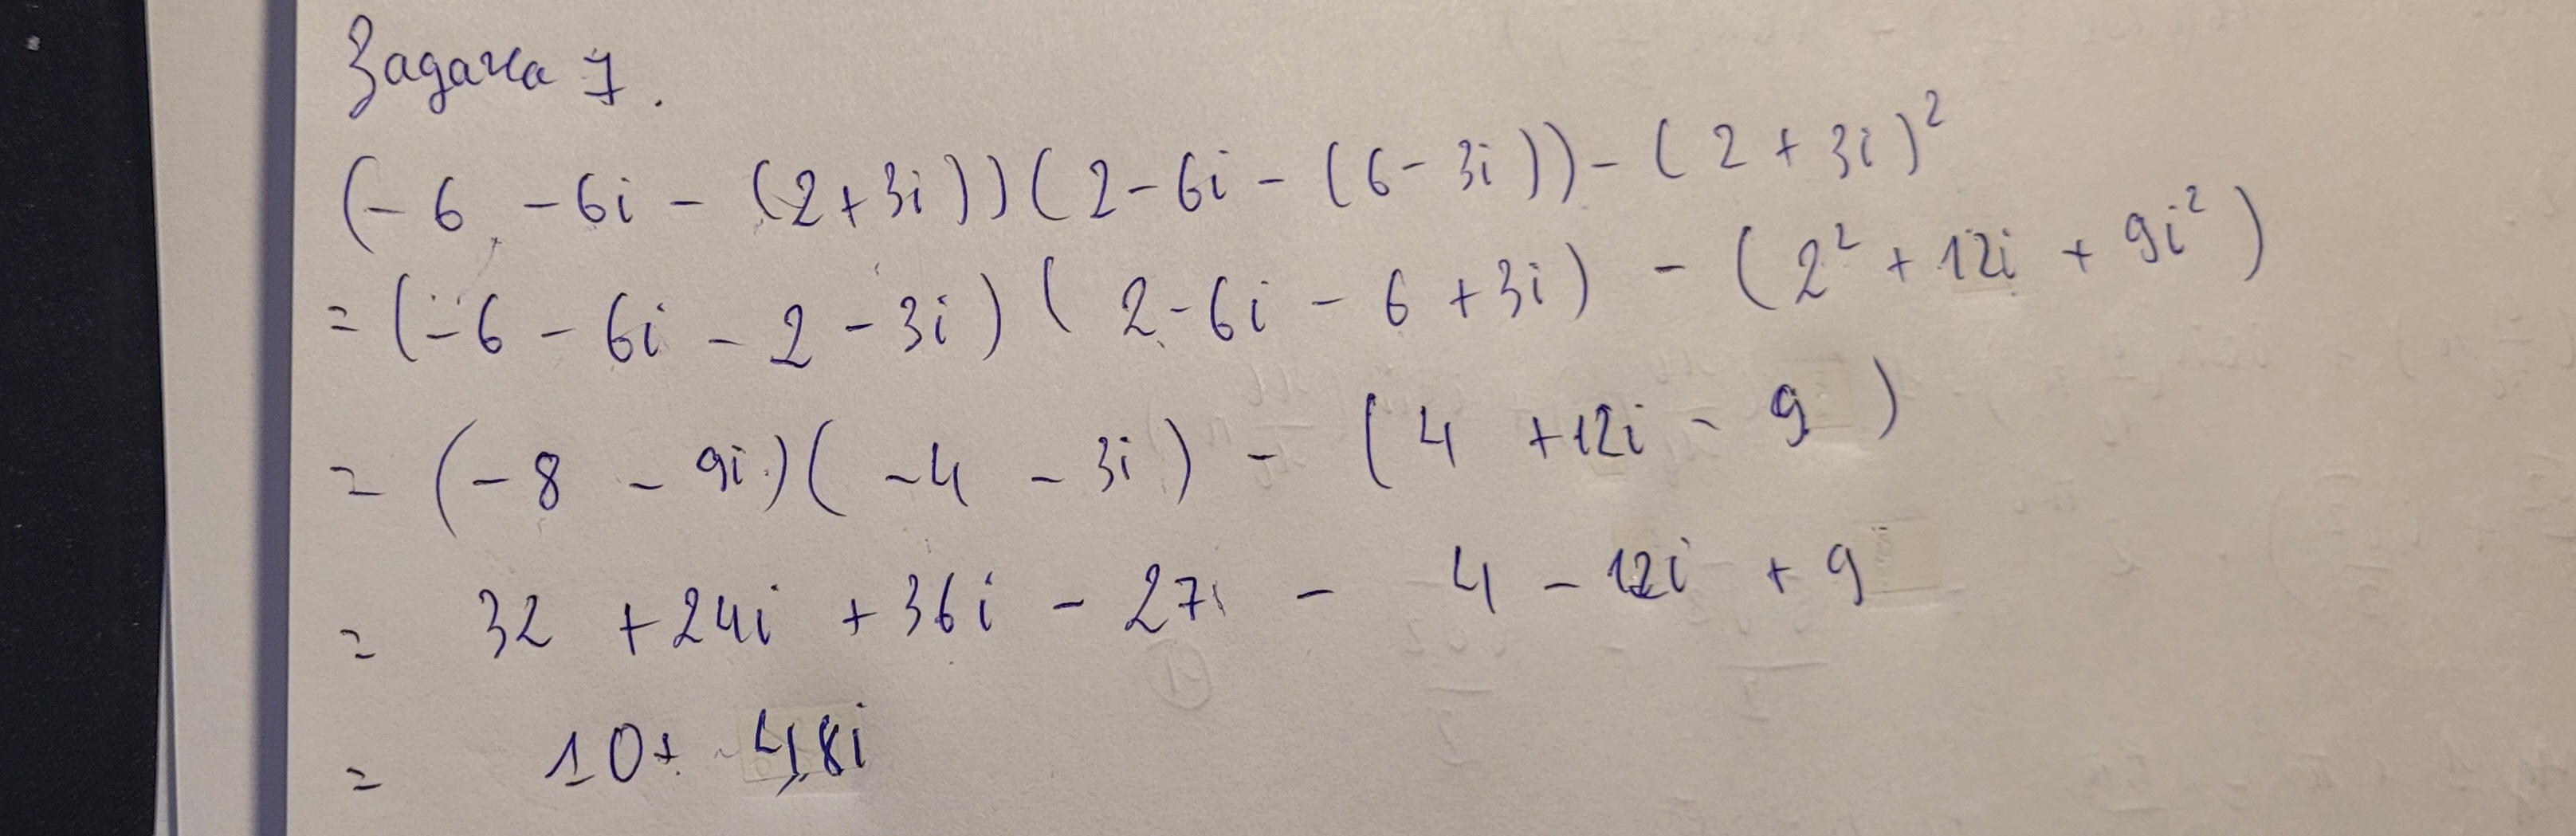 Задача 7.
(-6 -6i - (2+3i))(2-6i-(6-3i))-(2+3i)²
=(-6-6i-2-3i)(2-6i-6+3i)-(2²+12i+9i²)
=(-8-9i)(-4-3i)-(4+12i-9)
= 32+24i+36i-27-4-12i+9
= 10+48i